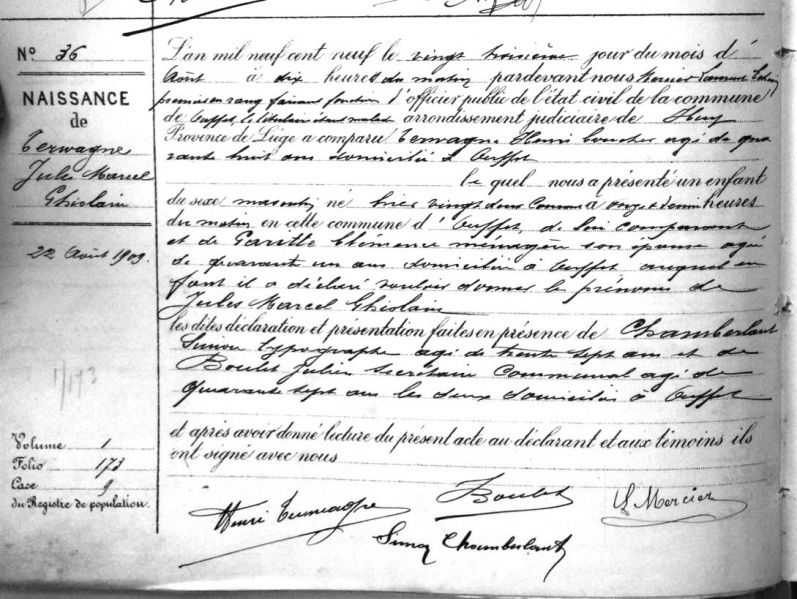 Nº 36
NAISSANCE
de
Terwagne
Jules Marcel
Ghislain
22 Août 1909.
1/173
Volume 1
Folio 173
Case 9
du Registre de population.
L'an mil neuf cent neuf le vingt troisième jour du mois d'
Août à dix heures du matin pardevant nous Mercier
premier en rang faisant fonction d'officier public de l'état civil de la commune
de Ouffet, le titulaire étant malade arrondissement judiciaire de Huy
Province de Liège a comparu Terwagne Henri boucher agé de qua
rante huit ans domicilié à Ouffet
le quel nous a présenté un enfant
du sexe masculin né hier vingt deux courant à onze et demi heures
du matin en cette commune d'Ouffet, de lui comparant
et de Clémence ménagère son épouse agée
de quarante un ans domiciliée à Ouffet auquel en
fant il a déclaré vouloir donner les prénoms de
Jules Marcel Ghislain
les dites déclaration et présentation faites en présence de Chamberlant
Simon typographe agé de trente sept ans et de
Boulet Julien secrétaire communal agé de
quarante sept ans les deux domiciliés à Ouffet
et après avoir donné lecture du présent acte au déclarant et aux témoins ils
ont signé avec nous
Henri Terwagne
Boulet
Mercier
Simon Chamberlant